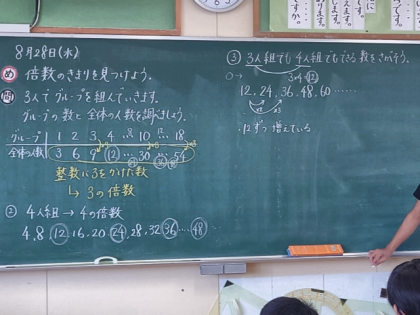 8月28日(水)
め 倍数のきまりを見つけよう。
問 3人でグループを組んでいきます。
グループの数と全体の人数を調べましょう。
グループ 1 2 3 4 … 10 … 18
全体の人数 3 6 9 12 … 30 … 54
整数に3をかけた数
↳ 3の倍数
② 4人組→4の倍数
4, 8, 12, 16, 20, 24, 28, 32, 36 … 48 …
③ 3人組でも4人組でもできる数をさがそう。
3×4=12
12, 24, 36, 48, 60 ……
12ずつ増えている